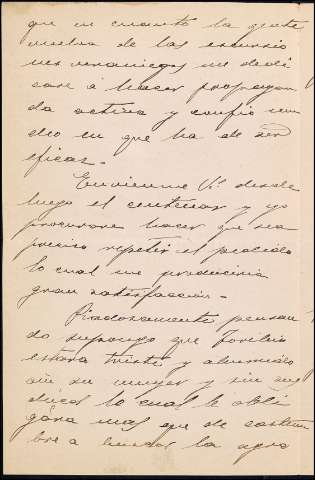 que en cuanto la gente
vuelva de las excursio
nes veraniegas me dedi
care á hacer propagan
da activa y confio mu
cho en que ha de ser
eficaz.-
Envienme Vs. desde
luego el centenar y yo
procurare hacer que sea
preciso repetir el pedido
lo cual me produciria
gran satisfacción.-
Piadosamente pensan
do supongo que Toribio
estará triste y aburrido
sin su mujer y sin sus
chicos lo cual le obli
gára mas que de costum
bre a buscar la